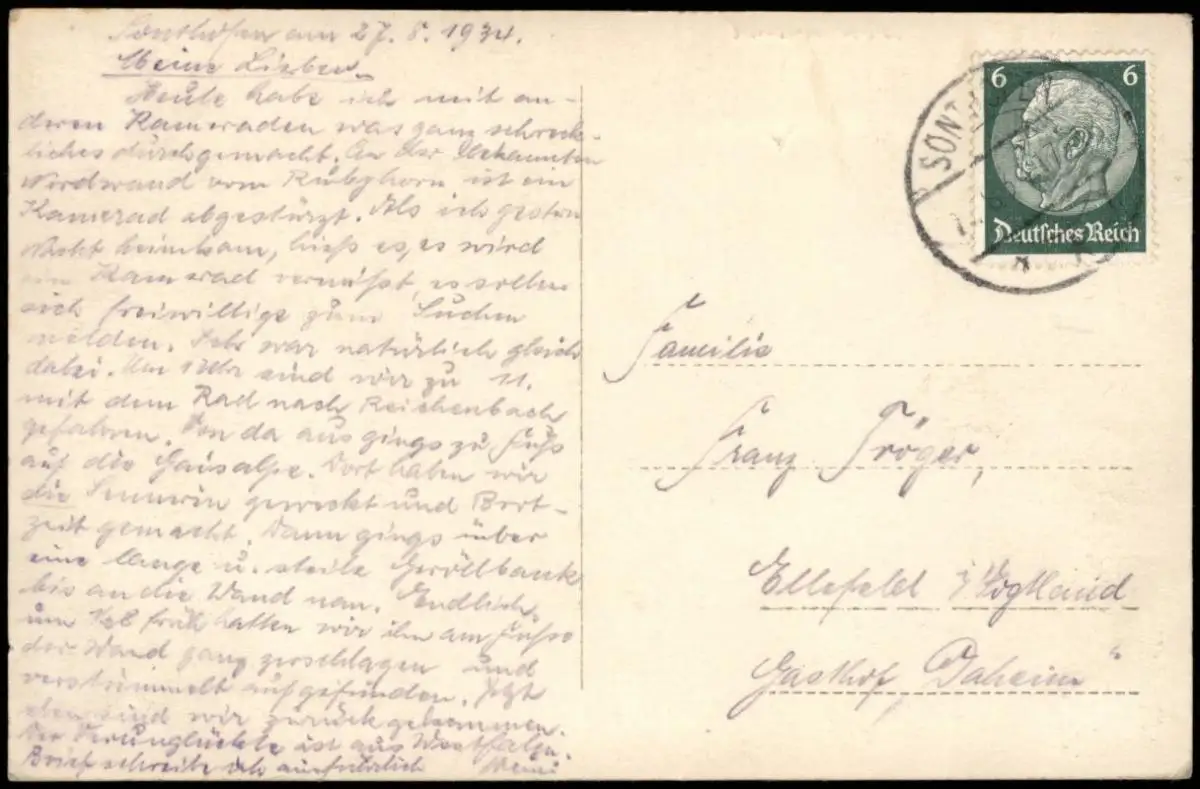 Sonthofen am 27. 8. 1934.
Meine Lieben.
Heute habe ich mit an-
deren Kameraden was ganz schreck-
liches durchgemacht. An der bekannten
Nordwand vom Rubyhorn ist ein
Kamerad abgestürzt. Als ich gestern
Nacht heimkam, hieß es, es wird
ein Kamerad vermißt, es sollen
sich freiwillige zum Suchen
melden. Ich war natürlich gleich
dabei. Um sind wir zu 11.
mit dem Rad nach Reichenbach
gefahren. Von da aus gings zu Fuß
auf die Gaisalpe. Dort haben wir
die Sennerin geweckt und Brot-
zeit gemacht. Dann gings über
eine lange u. steile Geröllbank
bis an die Wand ran. Endlich
um früh hatten wir ihn am Fuße
der Wand ganz zerschlagen und
verstümmelt aufgefunden. Jetzt
eben sind wir zurückgekommen.
Der Verunglückte ist aus Westfalen.
Brief schreibe ich ausführlich
6 6
Deutsches Reich
SONTHOFEN
Familie
Franz Tröger,
Ellefeld i/Vogtland
Gasthof „Daheim“